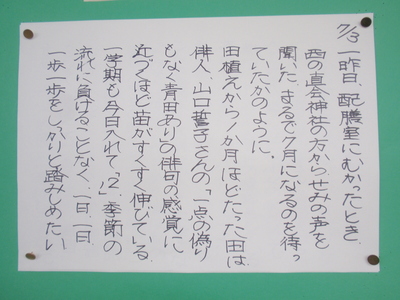 7/3 一昨日、配膳室にむかったとき、
西の直会神社の方からせみの声を
聞いた。まるで7月になるのを待っ
ていたかのように。
田植えから1か月ほどたった田は
俳人、山口誓子さんの「一点の偽り
もなく青田あり」の俳句の感覚に
近づくほど苗がすくすく伸びている。
一学期も今日入れて「12」！季節の
流れに負けることなく、一日、一日
一歩一歩をしっかりと踏みしめたい